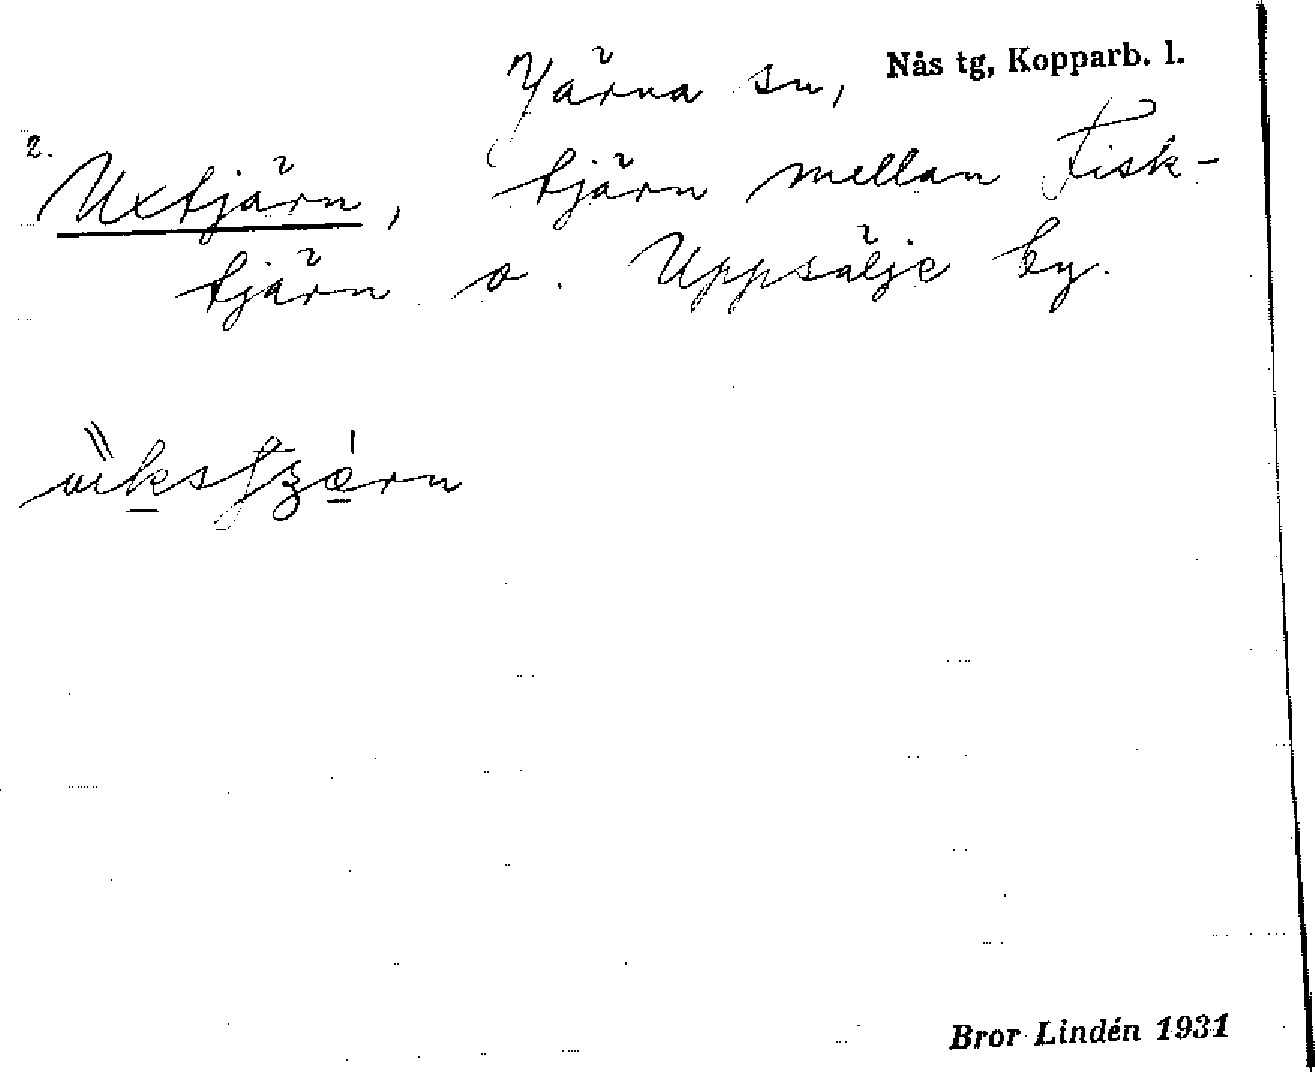 Järna sn, Nås tg, Kopparb. l.
2.
Uxtjärn, tjärn mellan Fisk-
tjärn o. Uppsälje by.
Bror Lindén 1931